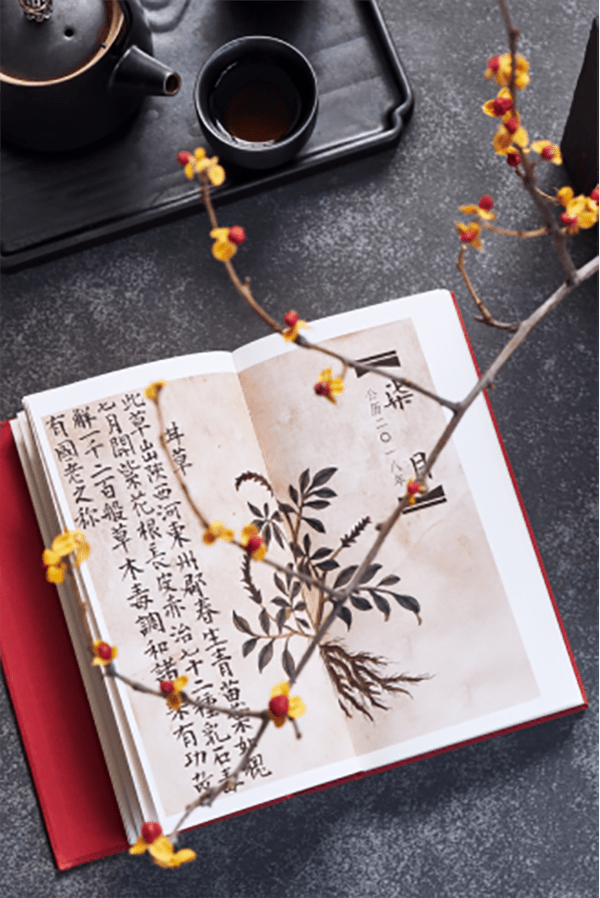 柒月
公历二〇一八年
甘草
此草出陕西河東州郡春生青苗葉如槐
七月開紫花根長皮赤治七十二種乳石毒
解一千二百般草木毒調和諸藥有功故
有國老之称